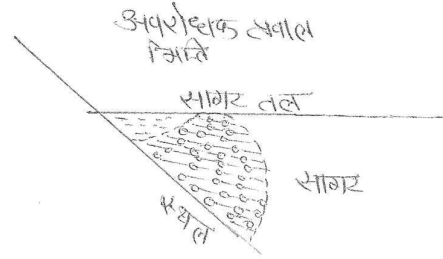 अवरोधक प्रवाल
भित्ति
सागर तल
सागर
स्थल